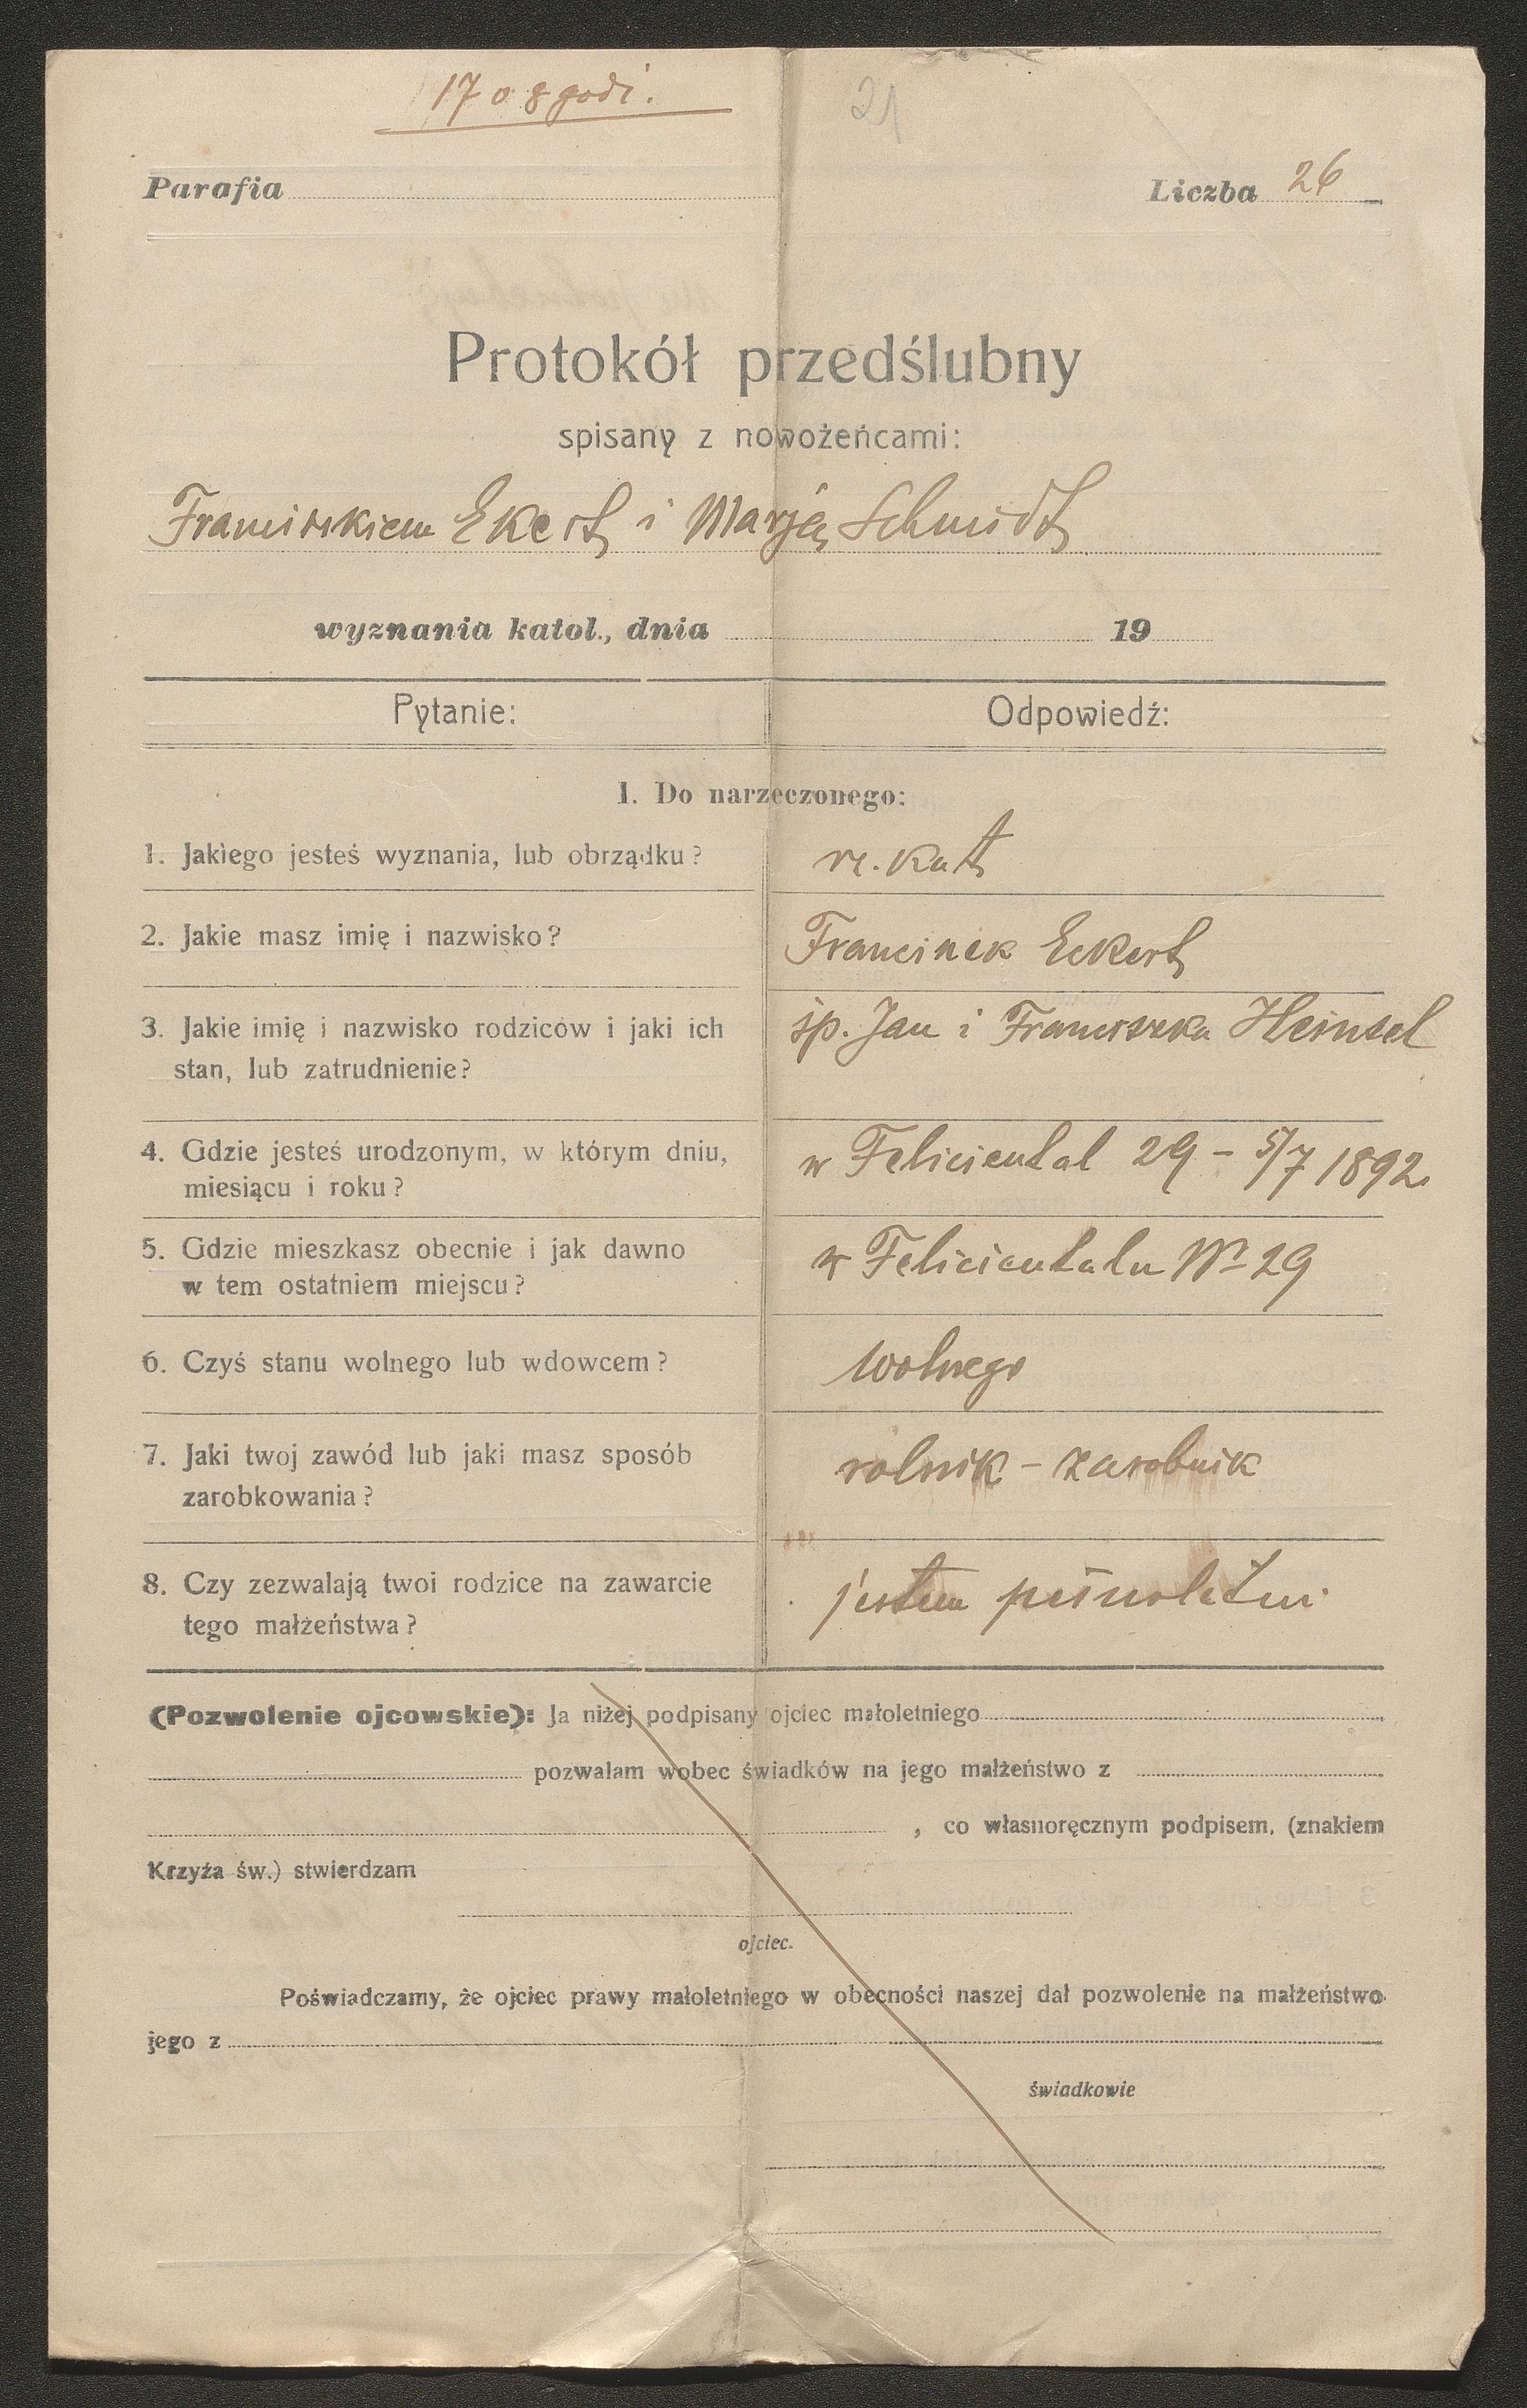 17 o 8 godz.
21
Parafia
Liczba 26
Protokół przedślubny
spisany z nowożeńcami:
Franciszkiem Ekert i Marją Schmidt
wyznania katol., dnia 19
Pytanie: Odpowiedź:
I. Do narzeczonego:
1. Jakiego jesteś wyznania, lub obrządku? rz. kat
2. Jakie masz imię i nazwisko? Franciszek Eckert
3. Jakie imię i nazwisko rodziców i jaki ich
stan, lub zatrudnienie?
śp. Jan i Franciszka Heinsel
4. Gdzie jesteś urodzonym, w którym dniu,
miesiącu i roku?
w Feliciental 29 – 5/7 1892.
5. Gdzie mieszkasz obecnie i jak dawno
w tem ostatniem miejscu?
w Felicientalu No 29
6. Czyś stanu wolnego lub wdowcem? wolnego
7. Jaki twoj zawód lub jaki masz sposób
zarobkowania?
rolnik – zarobnik
8. Czy zezwalają twoi rodzice na zawarcie
tego małżeństwa?
jestem
(Pozwolenie ojcowskie): Ja niżej podpisany ojciec małoletniego
pozwalam wobec świadków na jego małżeństwo z
, co własnoręcznym podpisem, (znakiem
Krzyża św.) stwierdzam
ojciec.
Poświadczamy, że ojciec prawy małoletniego w obecności naszej dał pozwolenie na małżeństwo
jego z
świadkowie